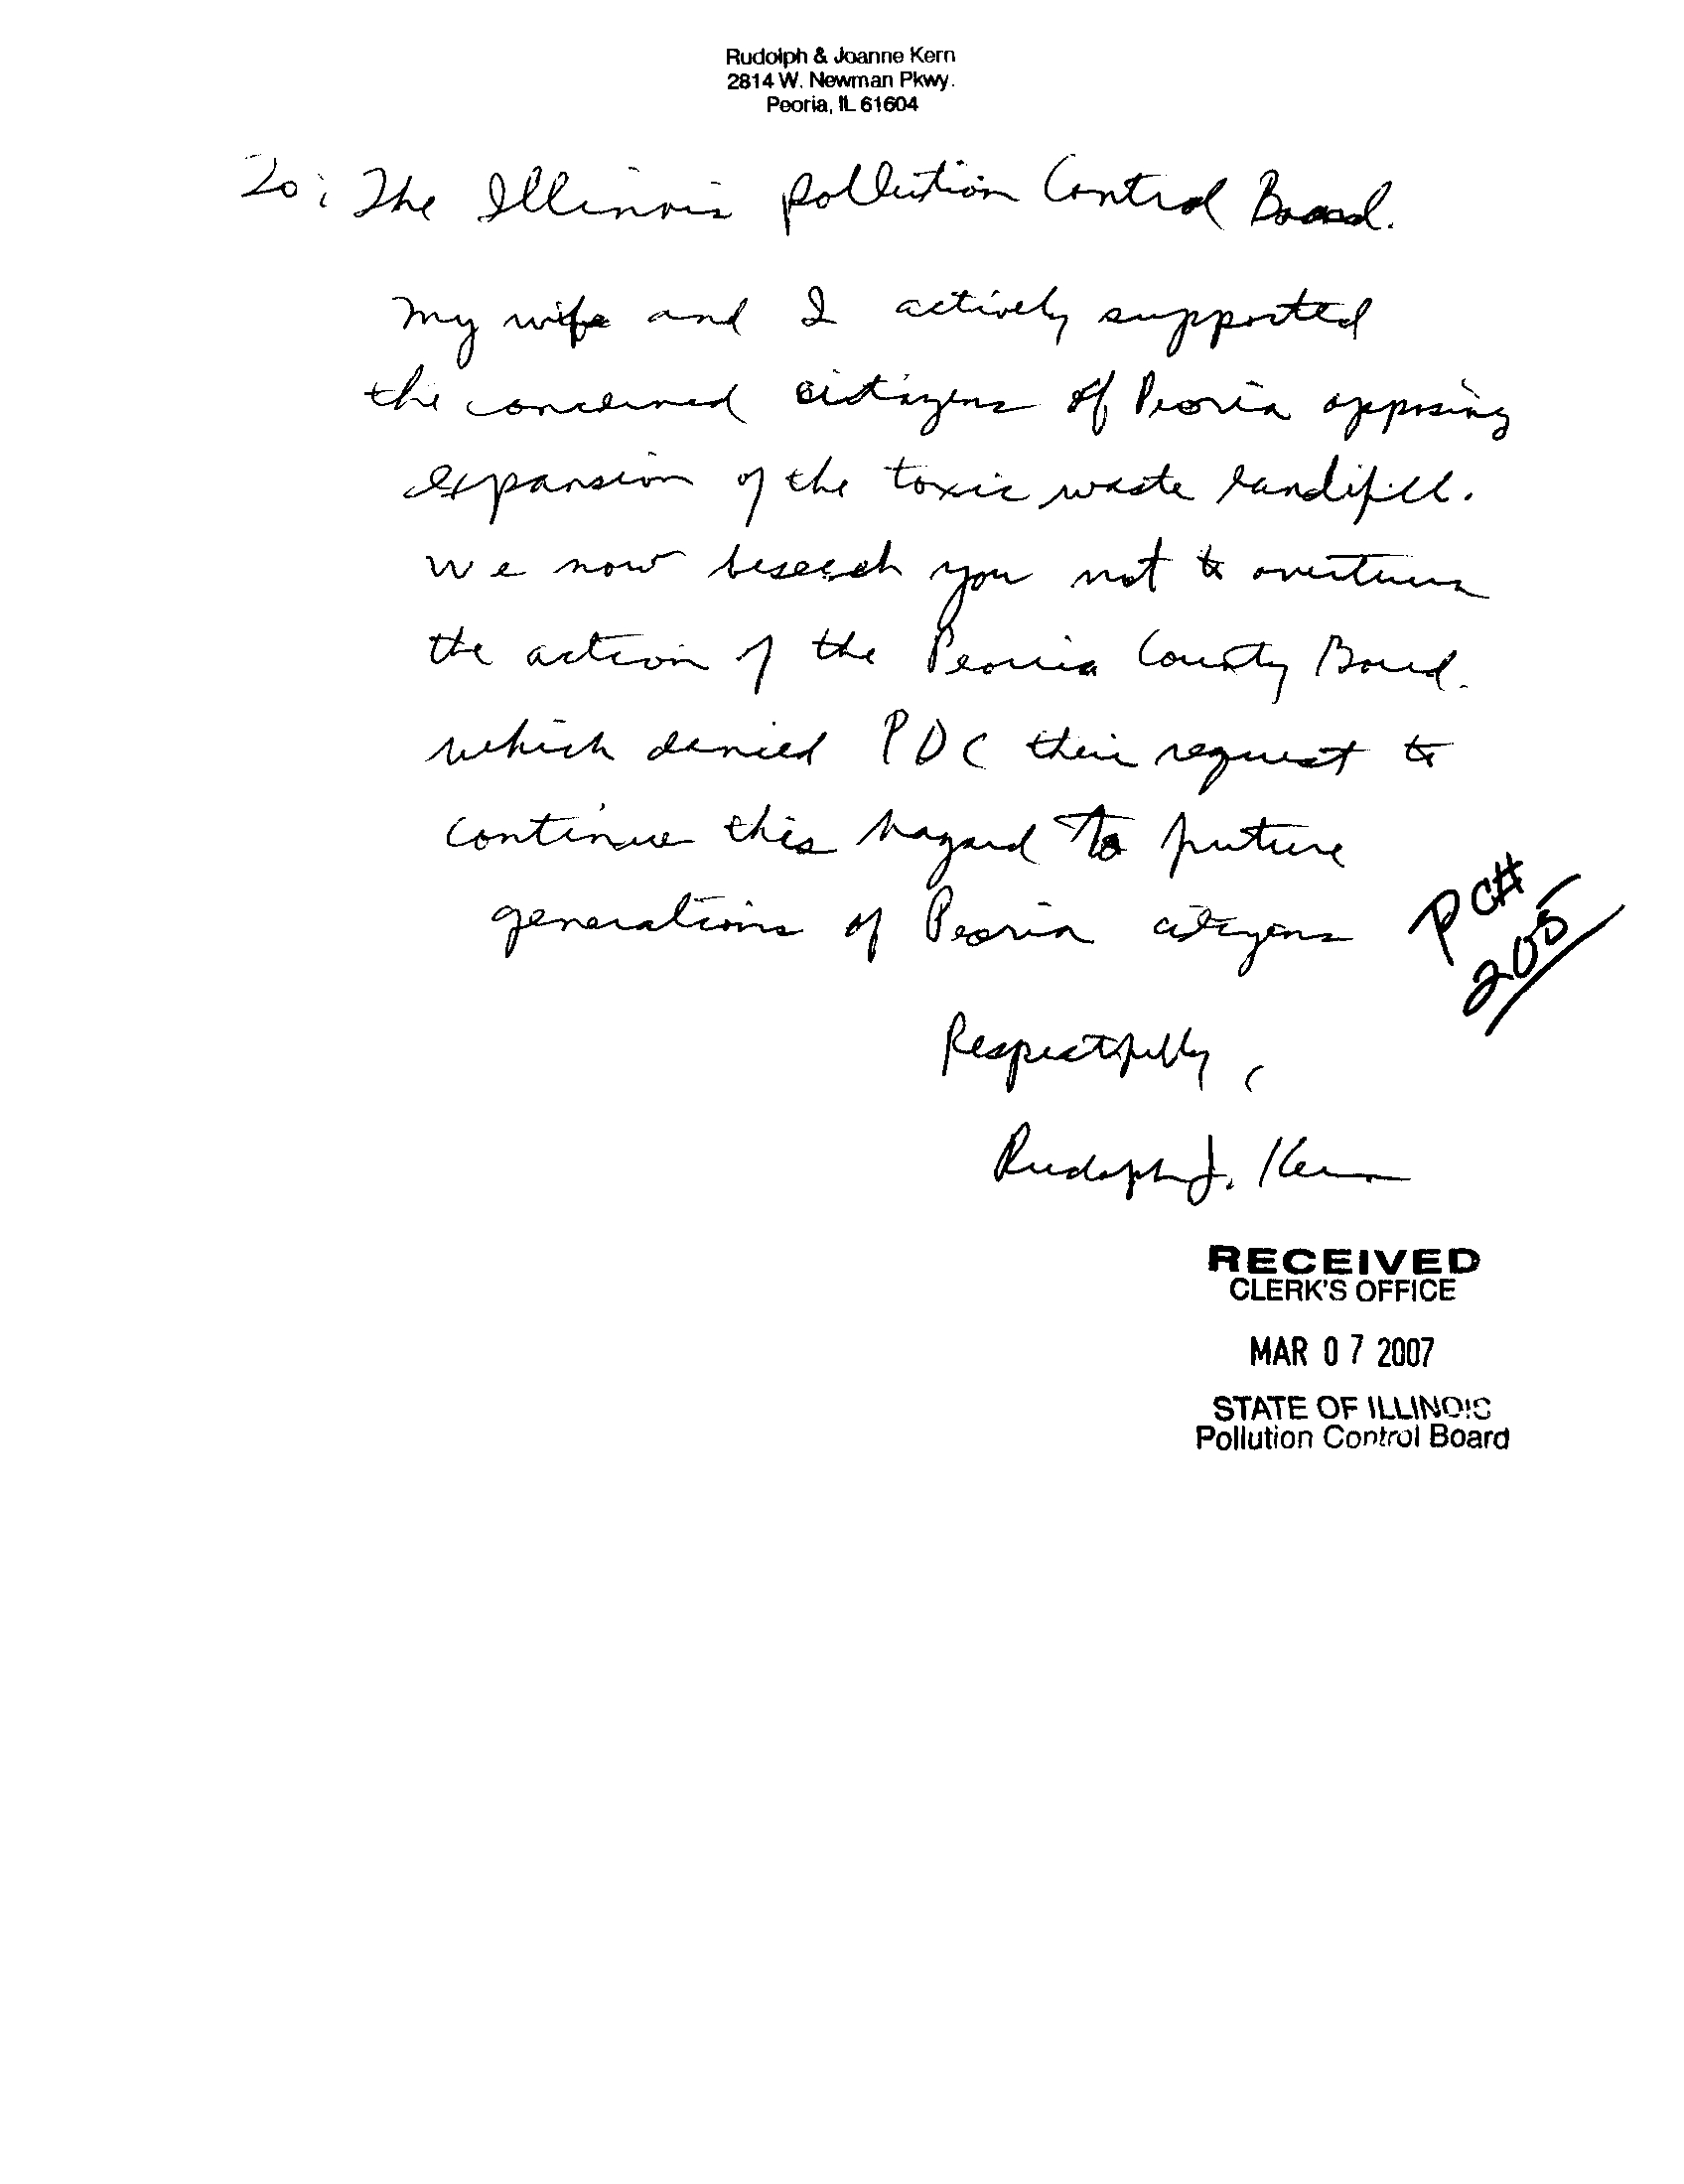 Rudolph & Joanne Kern
2814 W. Newman Pkwy.
Peoria, IL 61604
To: The Illinois Pollution Control Board.
My wife and I actively supported
the concerned citizens of Peoria opposing
expansion of the toxic waste landifill.
We now beseech you not to overturn
the action of the Peoria County Board.
which denied PDC their request to
continue this hazard to future
generations of Peoria citizens
PC#
205
Respectfully,
Rudolph J. Kern
RECEIVED
CLERK'S OFFICE
MAR 07 2007
STATE OF ILLINOIS
Pollution Control Board